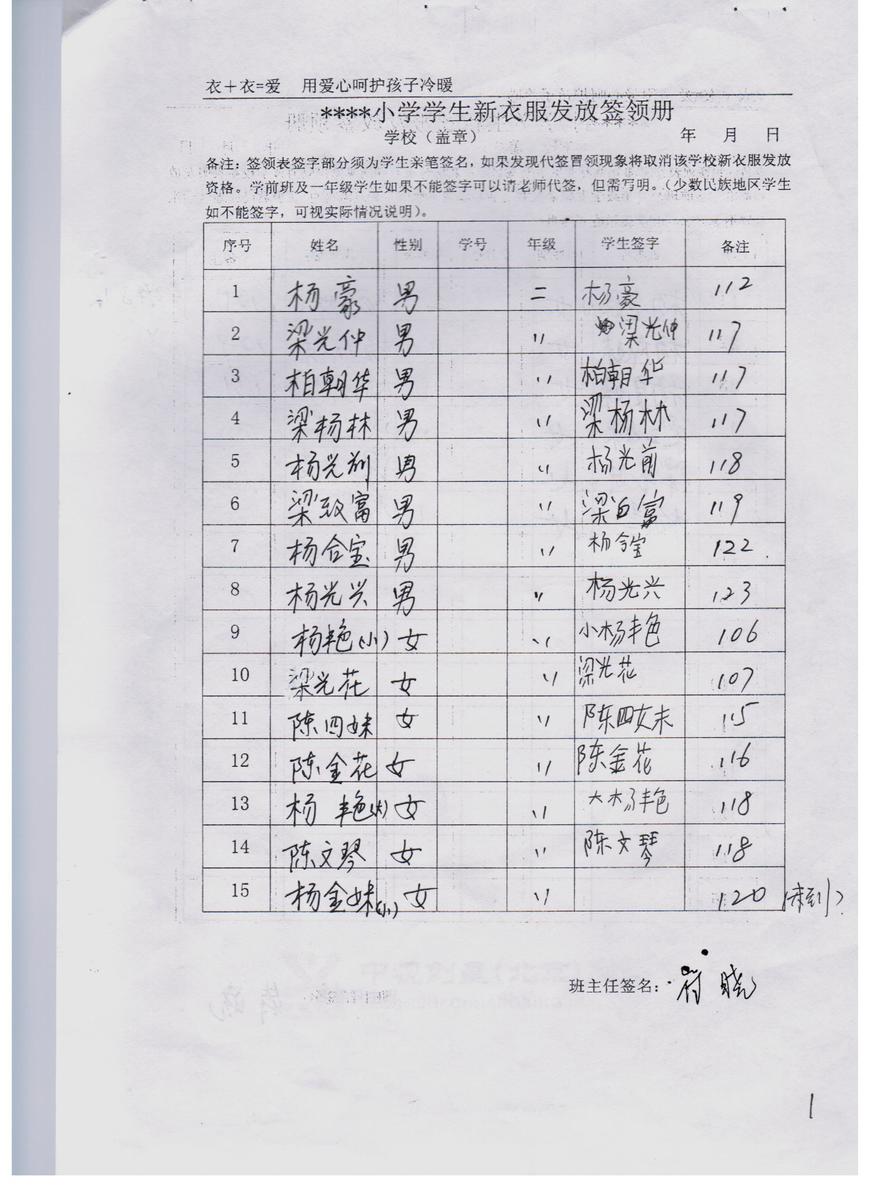 衣+衣=爱 用爱心呵护孩子冷暖
****小学学生新衣服发放签领册
学校（盖章） 年 月 日
备注：签领表签字部分须为学生亲笔签名，如果发现代签冒领现象将取消该学校新衣服发放
资格。学前班及一年级学生如果不能签字可以请老师代签，但需写明。（少数民族地区学生
如不能签字，可视实际情况说明）。
序号 姓名 性别 学号 年级 学生签字 备注
1 杨豪 男 二 杨豪 112
2 梁光仲 男 〃 梁光仲 117
3 柏朝华 男 〃 柏朝华 117
4 梁杨林 男 〃 梁杨林 117
5 杨光前 男 〃 杨光前 118
6 梁致富 男 〃 梁白富 119
7 杨合宝 男 〃 杨合宝 122
8 杨光兴 男 〃 杨光兴 123
9 杨艳(小) 女 〃 小杨艳 106
10 梁光花 女 〃 梁光花 107
11 陈四妹 女 〃 陈四妹 115
12 陈金花 女 〃 陈金花 116
13 杨艳(大) 女 〃 大杨艳 118
14 陈文琴 女 〃 陈文琴 118
15 杨金妹(小) 女 〃 120 (未到)
班主任签名：符晓
1